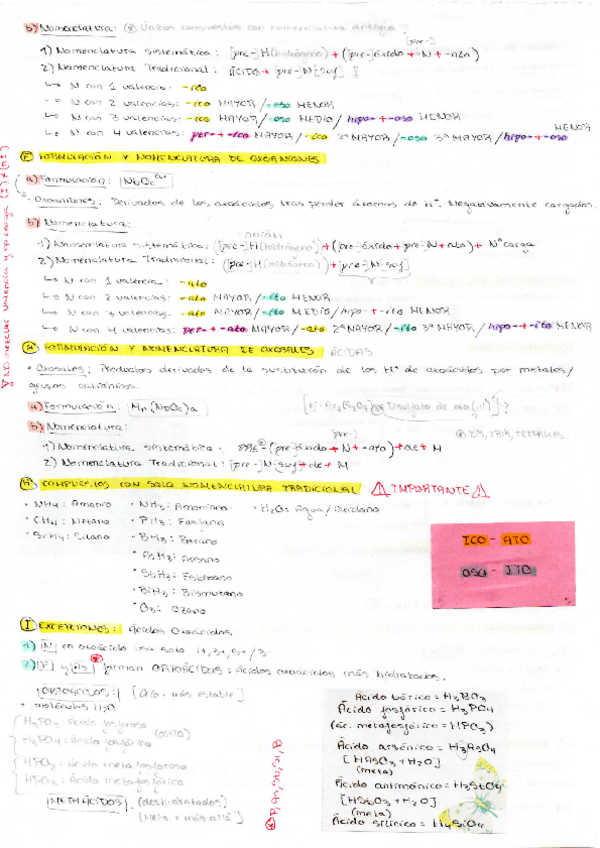 b) Nomenclatura: (*) Únicos compuestos con nomenclatura antigua
[pre-]
1) Nomenclatura sistemática: [pre-]H(hidrógeno) + ([pre-]óxido + N + -ato)
2) Nomenclatura Tradicional: ÁCIDO + [pre-]N[suf]
↳ N con 1 valencia: -ico
↳ N con 2 valencias: -ico MAYOR / -oso MENOR
↳ N con 3 valencias: -ico MAYOR / -oso MEDIO / hipo- + -oso MENOR
↳ N con 4 valencias: per- + -ico MAYOR / -ico 2º MAYOR / -oso 3º MAYOR / hipo- + -oso MENOR
F) FORMULACIÓN Y NOMENCLATURA DE OXOANIONES
a) Formulación:
· Oxoaniones: Derivados de los oxoácidos tras perder átomos de H⁺. Negativamente cargados.
b) Nomenclatura:
1) Nomenclatura sistemática: ([pre-]H(hidrógeno) + (pre-óxido + pre-N + ato) + Nº carga
2) Nomenclatura Tradicional: ([pre-]H(hidrógeno)) + [pre-]N[suf]
↳ N con 1 valencia: -ato
↳ N con 2 valencias: -ato MAYOR / -ito MENOR
↳ N con 3 valencias: -ato MAYOR / -ito MEDIO / hipo- + -ito MENOR
↳ N con 4 valencias: per- + -ato MAYOR / -ato 2º MAYOR / -ito 3º MAYOR / hipo- + -ito MENOR
NO mezclar valencia y nº carga
FORMULACIÓN Y NOMENCLATURA DE OXOSALES ÁCIDAS
· Oxosales: Productos derivados de la sustitución de los H⁺ de oxoácidos por metales/
grupos catiónicos.
a) Formulación: Mn(NbOc)a
b) Nomenclatura:
(*) BIS, TRIS, TETRAKIS
1) Nomenclatura sistemática: (pre-óxido + N + -ato) + de + M
2) Nomenclatura Tradicional: [pre-]N[suf] + de + M
H) COMPUESTOS CON SOLO NOMENCLATURA TRADICIONAL ⚠ IMPORTANTE ⚠
· NH₄: Amonio · NH₃: Amoniaco · H₂O: Agua/Oxidano
· CH₄: Metano · PH₃: Fosfano
· SiH₄: Silano · BH₃: Borano
· AsH₃: Arsano
· SbH₃: Estibano
· BiH₃: Bismutano
· O₃: Ozono
ICO - ATO
OSO - ITO
I) EXCEPCIONES: Ácidos Oxoácidos
1) N en oxoácido usa solo
2) P y As forman ORTOÁCIDOS: Ácidos oxoácidos más hidratados.
ORTOÁCIDOS: [Orto: más estable]
+ moléculas H₂O
H₃PO₃: Ácido fosforoso
(orto)
H₃PO₄: Ácido fosfórico
HPO₂: Ácido metafosforoso
HPO₃: Ácido metafosfórico
METAÁCIDOS (deshidratados)
[Meta = más allá]
P, As, Sb, Si, B
Ácido bórico = H₃BO₃
Ácido fosfórico = H₃PO₄
(ác. metafosfórico = HPO₃)
Ácido arsénico = H₃AsO₄
[HAsO₃ + H₂O]
(meta)
Ácido antimónico = H₃SbO₄
[HSbO₃ + H₂O]
(meta)
Ácido silícico = H₄SiO₄